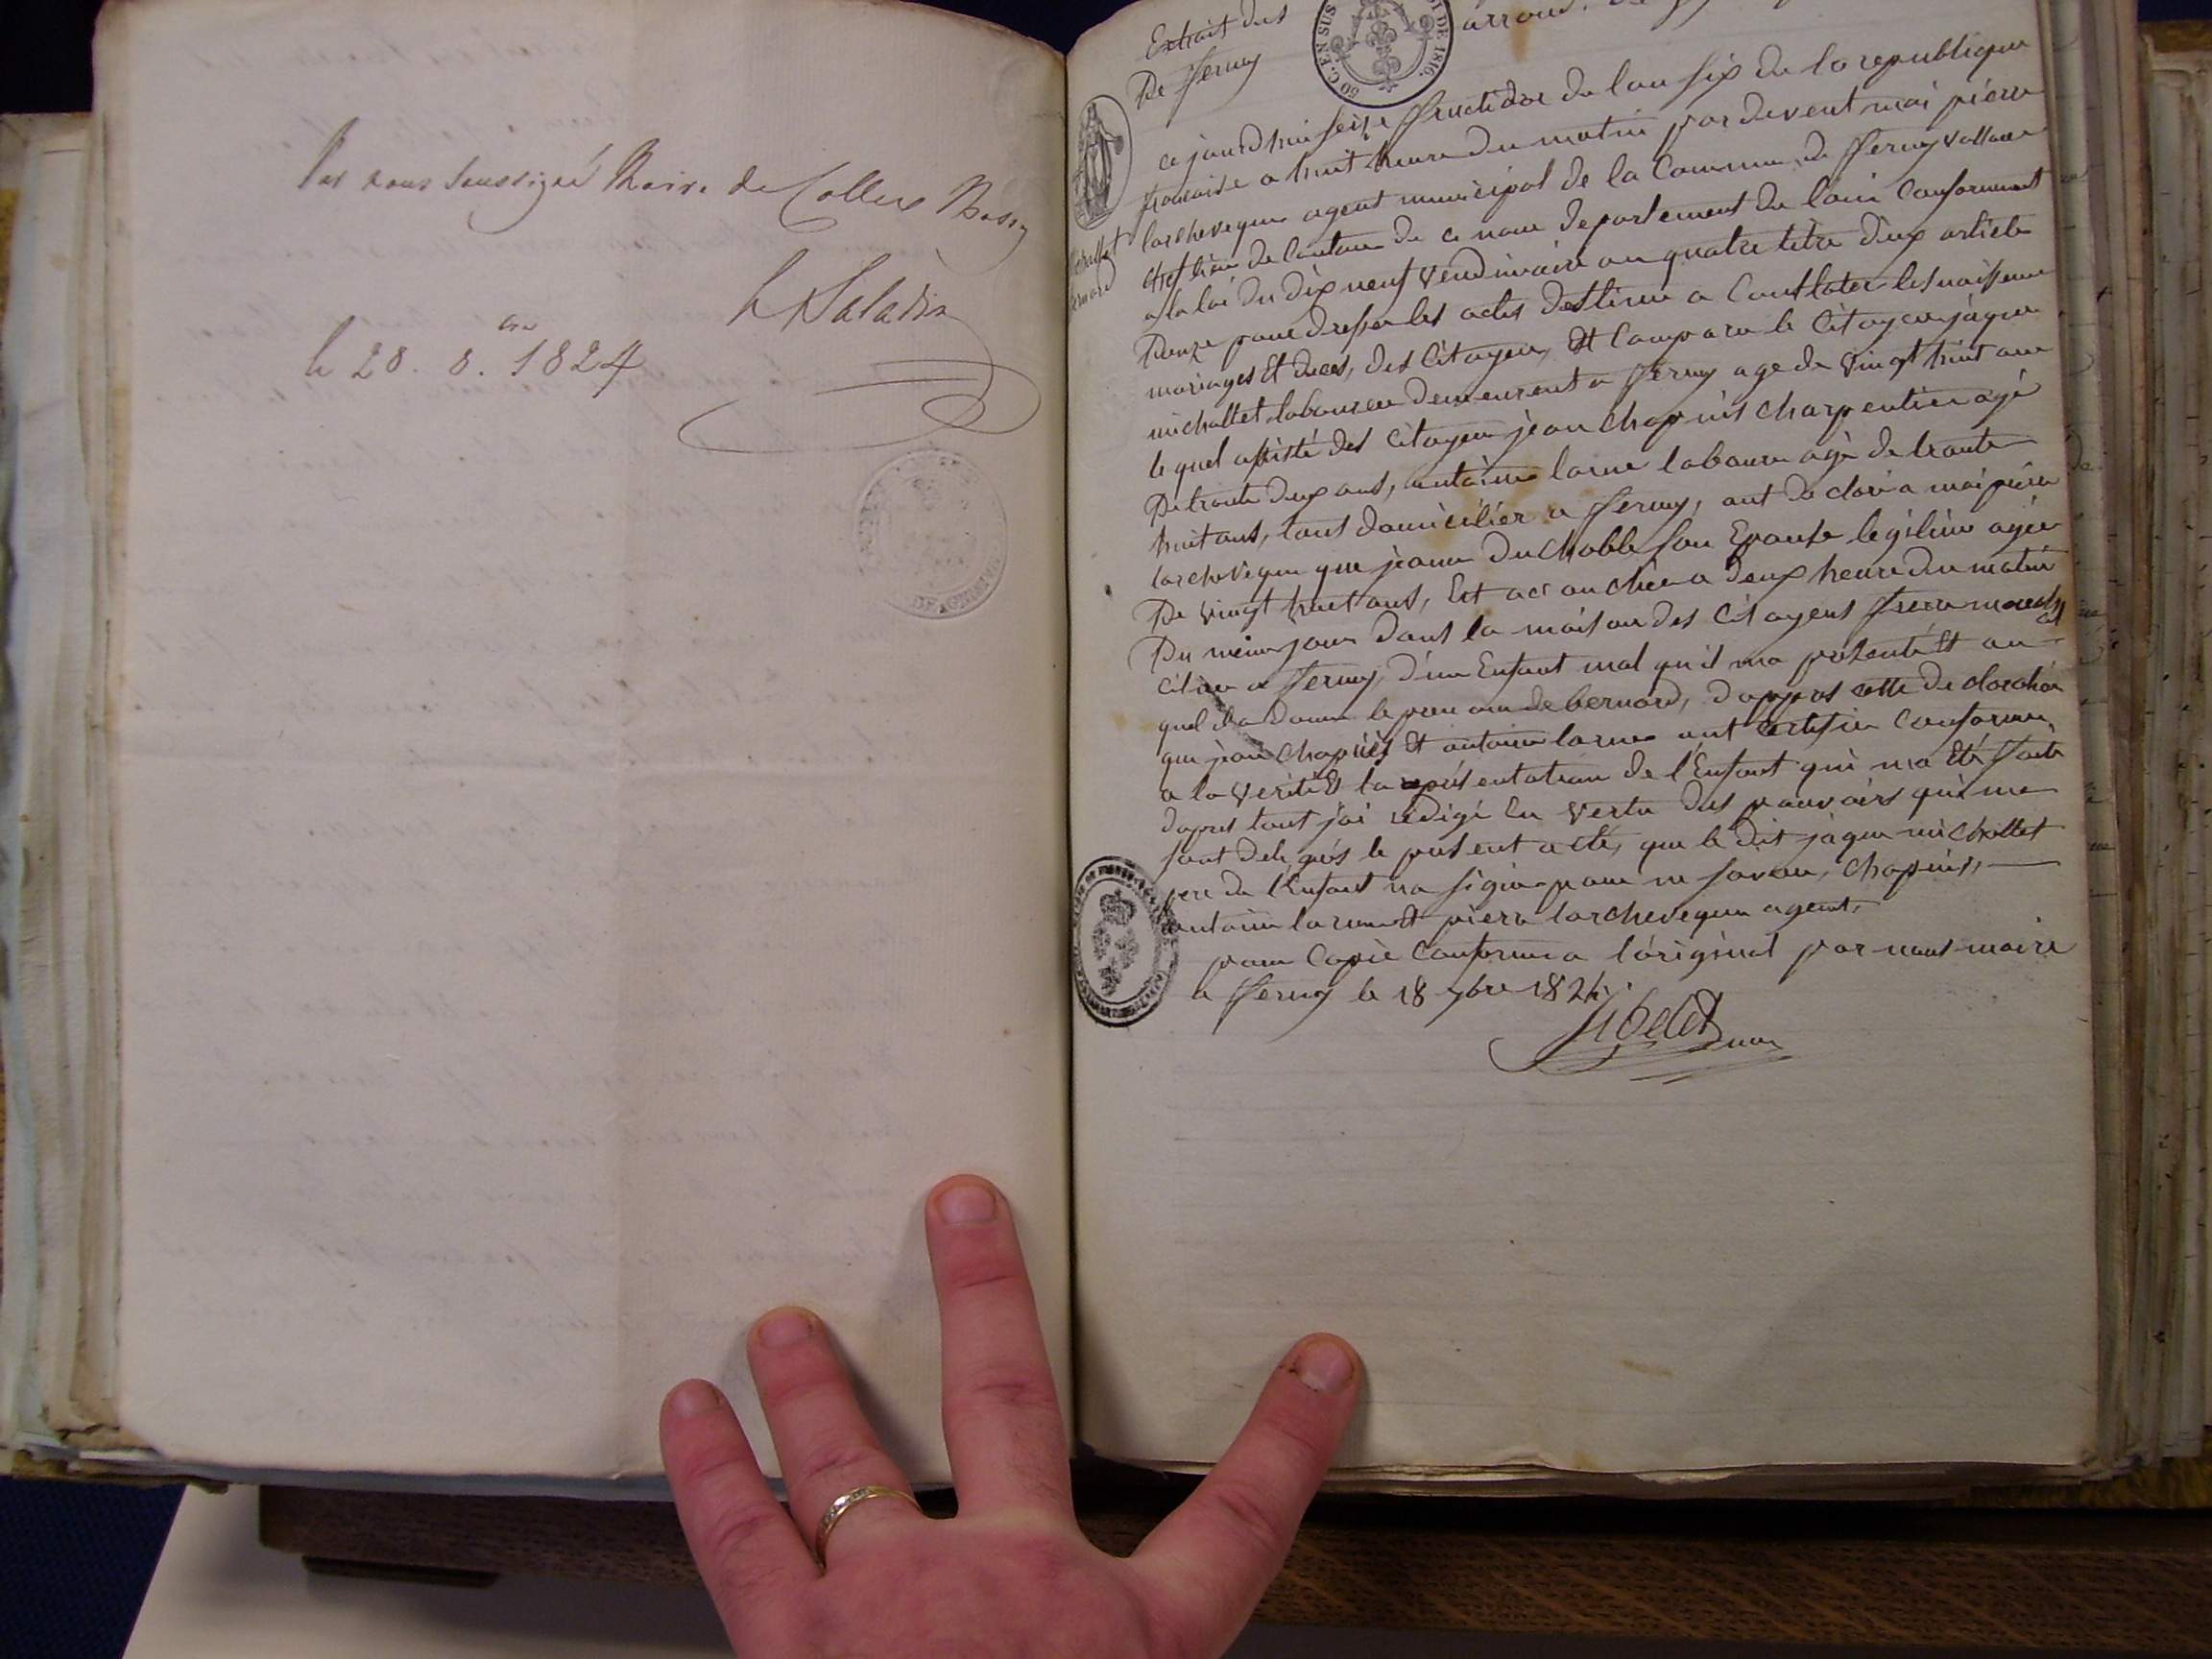 Par nous soussigné Maire de Collex Bossy
le 28. 8.bre 1824
Saladin
Extrait des
arrond.
De ferney
50 C. EN SUS
OI DE 1816.
michallet
bernard
ce jourdhui seize fructidor de lan six de la republique
francaise a huit heure du matin par devent moi pierre
larcheveque agent municipal de la Commune de fferney voltaire
chef lieu de Canton de ce nom departement du lain Conforment
a la loi du dix neuf vendimiaire an quatre titre deux article
Douze pour dresser les actes destiner a Constater les naissence
mariages Et deces, des Citoyens, Est Comparu le Citoyen jaque
michallet laboureur demeurent a fferney age de vingt huit ans
le quel assisté des Citoyen jean chapuis charpentier agé
De trante deux ans, antoine larme laboure agé de trante
huit ans, tous domicilier a fferney, ont de claré a moi pierre
larcheveque que jeanne Duchoble son Epouse legitime agée
De vingt huit ans, Est accouchée a deux heure du matin
Du meme jour dans la maison des Citoyens frere
a fferney, d'un Enfant mal qu'il ma présenté Et au
quel il a donné le prenom de bernard, dappres cette de claration
que jean chapuis Et antoine larme ont certifier Conforme
a la verité Et la représentation de l'Enfant qui ma Eté faite
dapres tout jai rédigé En vertu des pouvoirs qui me
sont delegués le présent acte, que le dit jaque michallet
pere de l'Enfant na signé pour ne savoir, chapuis,
antoine larme Et pierre larcheveque agent,
pour Copie Conforme a l'original par nous maire
a fferney le 18 7bre 1824.